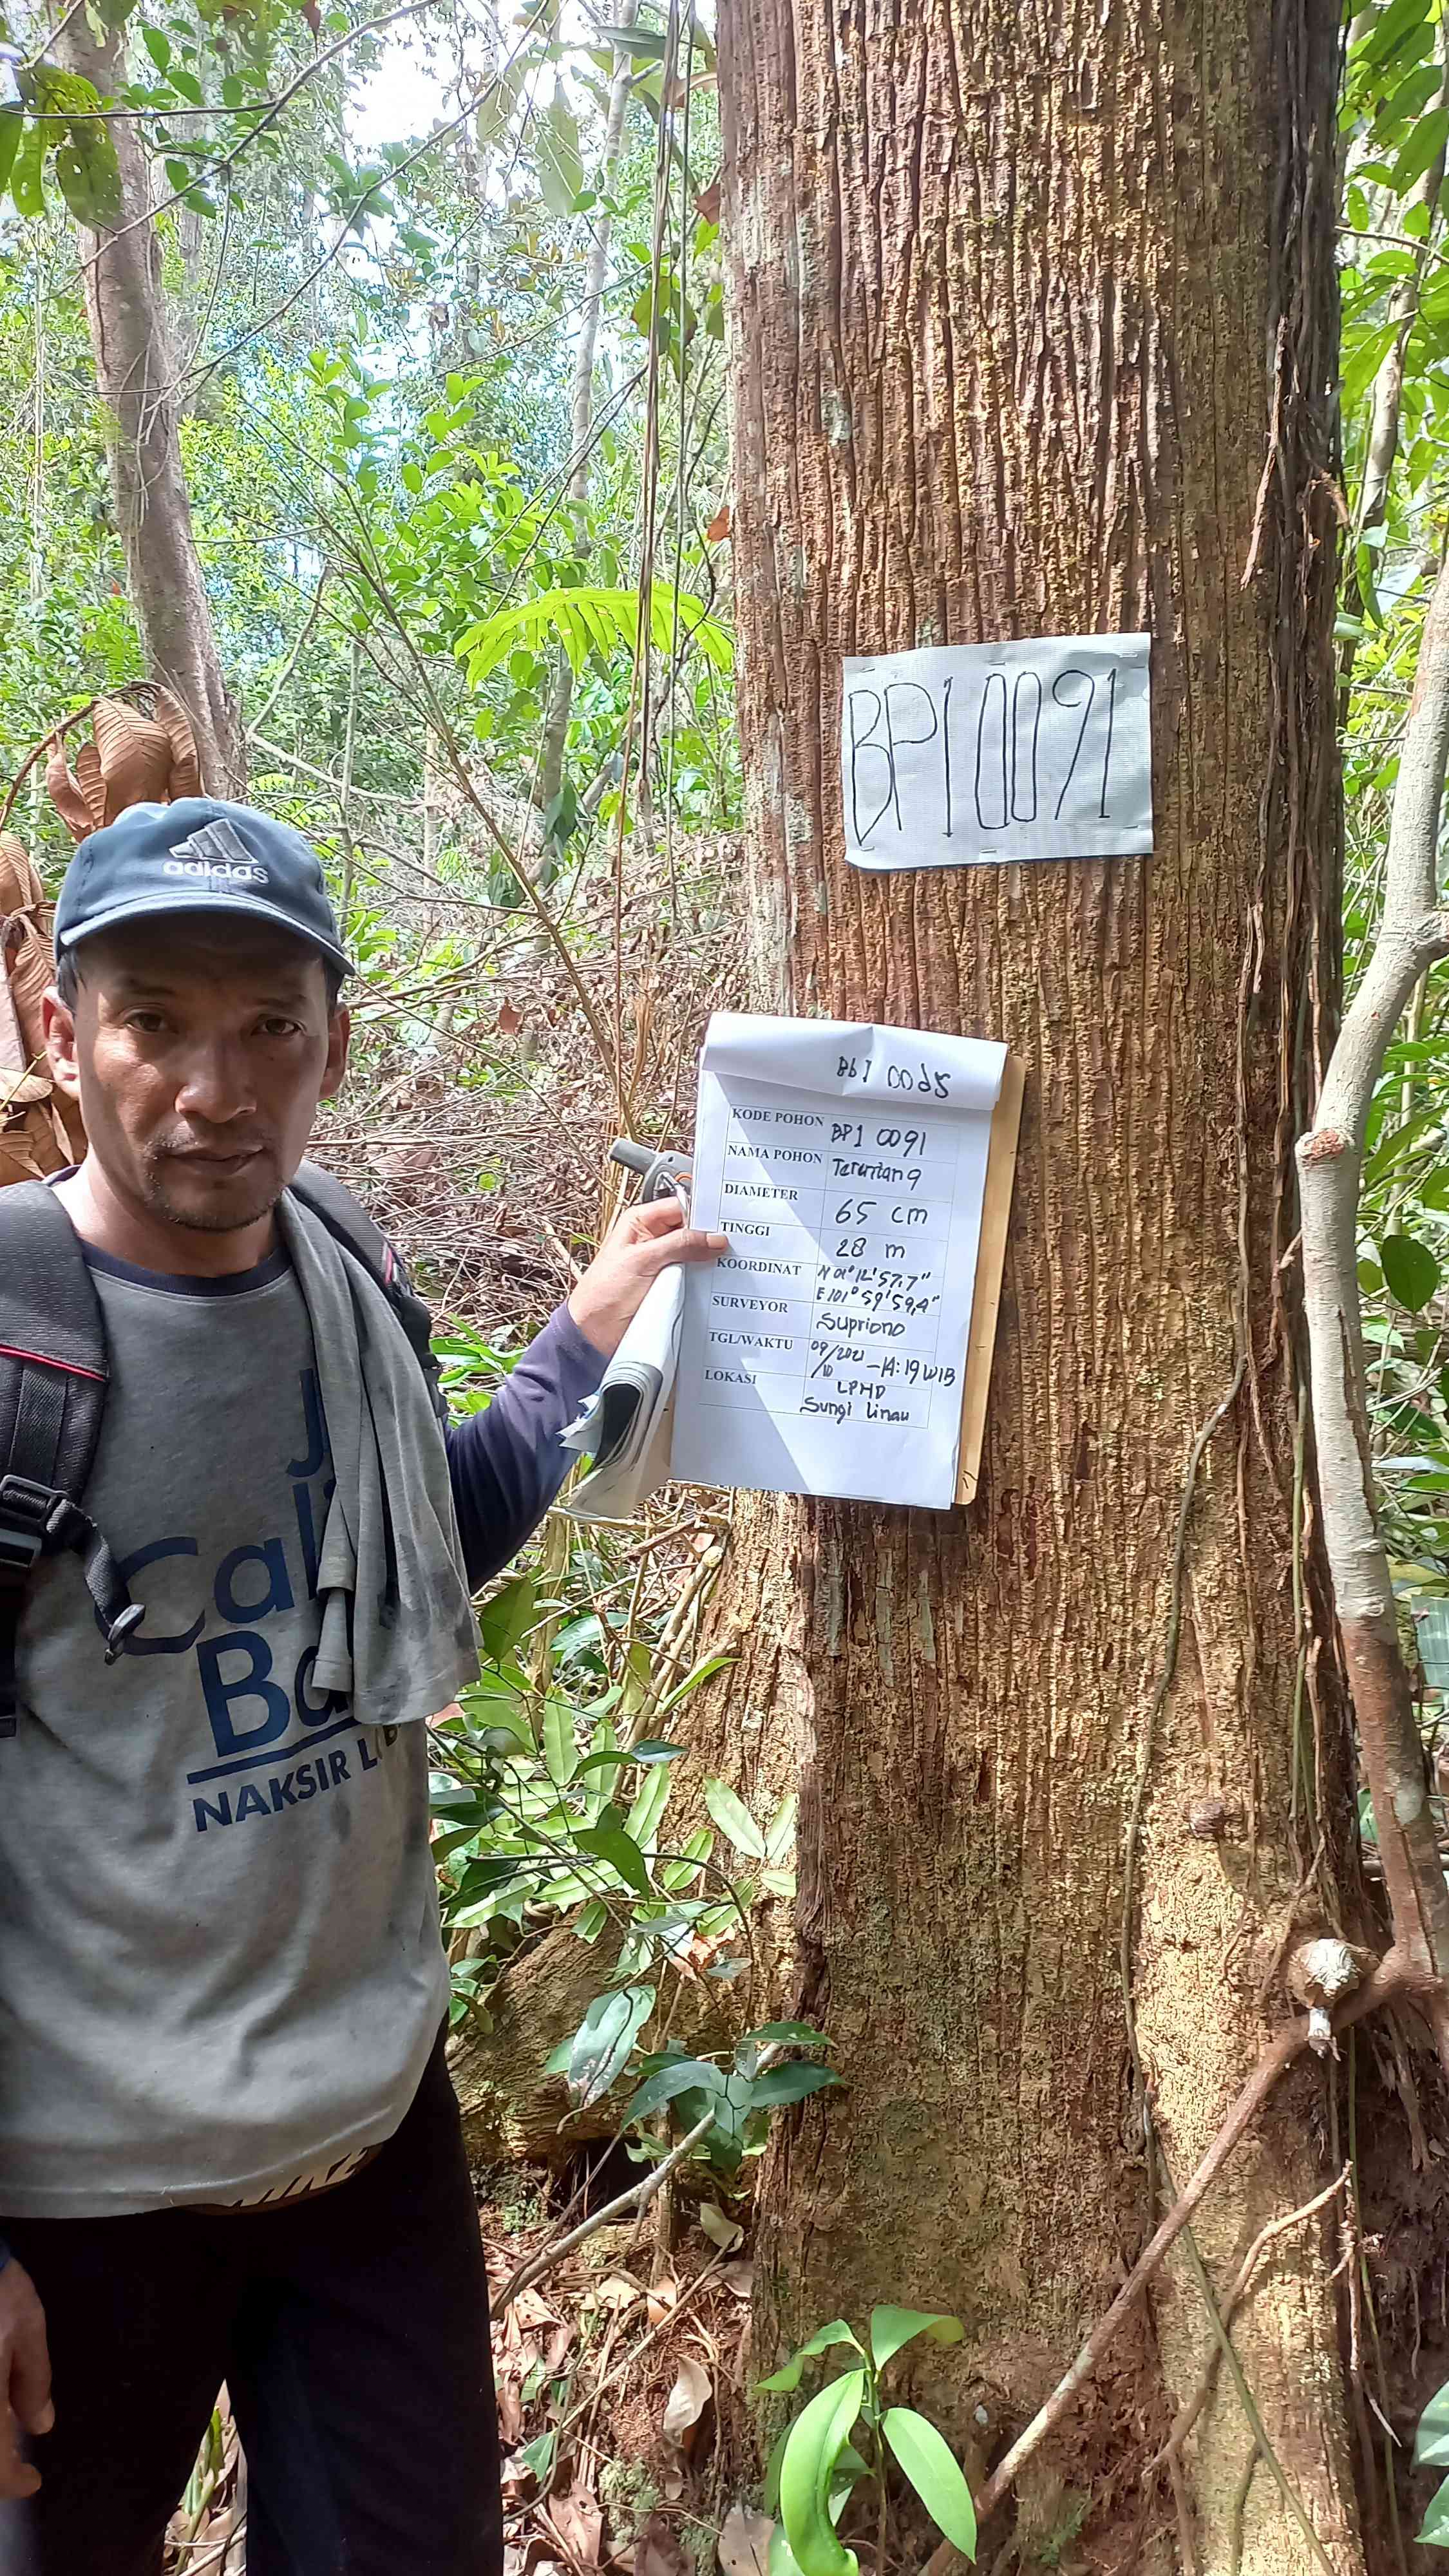 BP10091
adidas
BP1 0095
KODE POHON BP1 0091
NAMA POHON Terentang
DIAMETER 65 cm
TINGGI 28 m
KOORDINAT N 01° 12' 57.7"
E 101° 59' 59,4"
SURVEYOR Supriono
TGL/WAKTU 09/10/2021 - 14:19 WIB
LOKASI LPHD
Sungi Linau
Ba
NAKSIR